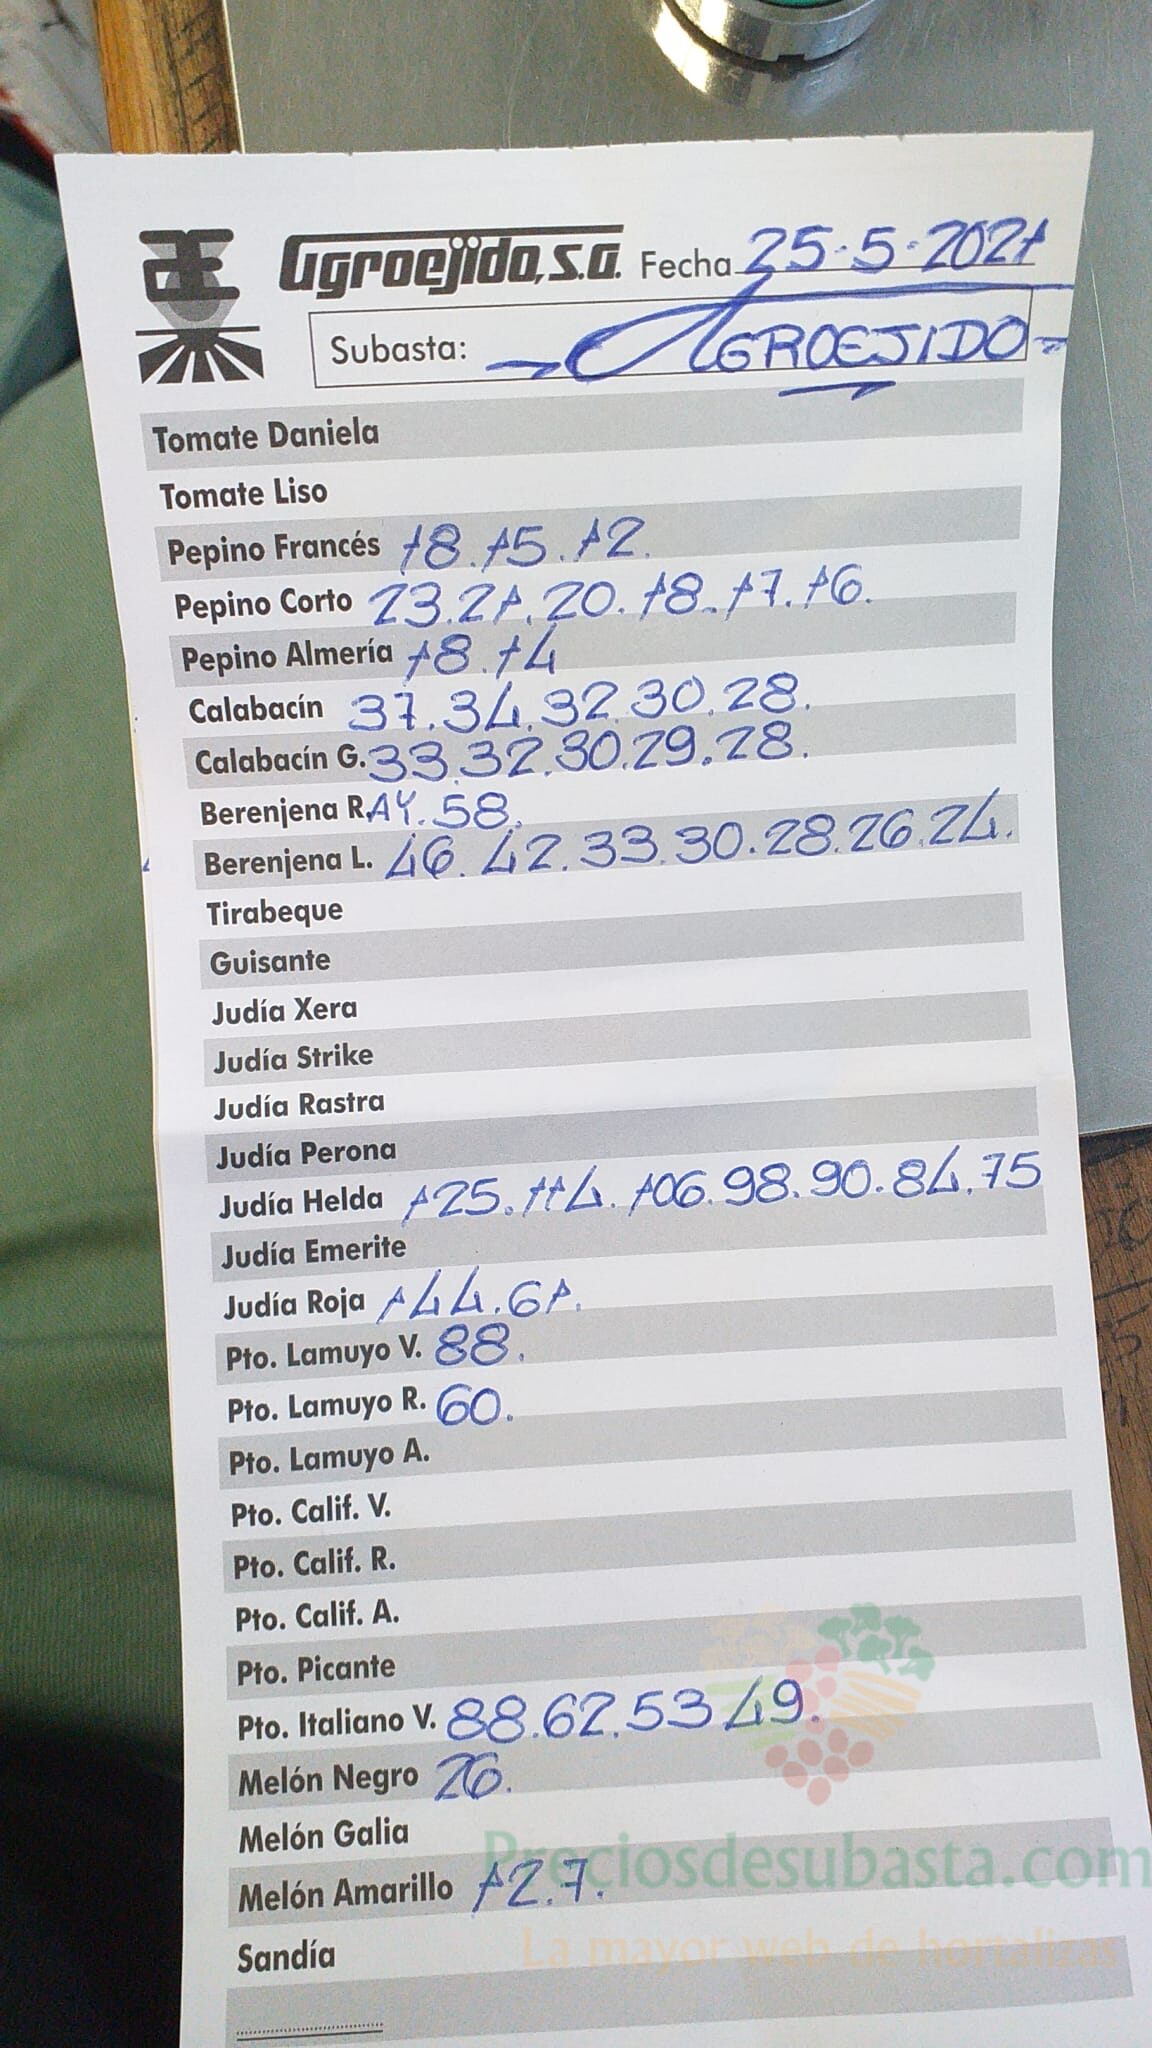 Agroejido, S.A. Fecha 25-5-2021
Subasta: AGROEJIDO
Tomate Daniela
Tomate Liso
Pepino Francés 18.15.12.
Pepino Corto 23.21.20.18.17.16.
Pepino Almería 18.14
Calabacín 37.34.32.30.28.
Calabacín G. 33.32.30.29.28.
Berenjena R.AY. 58.
Berenjena L. 46.42.33.30.28.26.24.
Tirabeque
Guisante
Judía Xera
Judía Strike
Judía Rastra
Judía Perona
Judía Helda 125.114.106.98.90.84.75
Judía Emerite
Judía Roja 144.61.
Pto. Lamuyo V. 88.
Pto. Lamuyo R. 60.
Pto. Lamuyo A.
Pto. Calif. V.
Pto. Calif. R.
Pto. Calif. A.
Pto. Picante
Pto. Italiano V. 88.62.53.49.
Melón Negro 26.
Melón Galia
Preciosdesubasta.com
Melón Amarillo 12.7.
La mayor web de hortalizas
Sandía